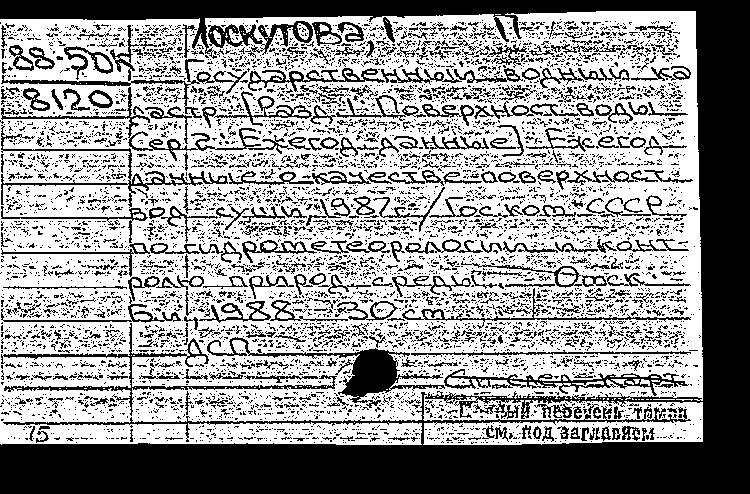 Лоскутова, Г П
88-5ДК
8120
Государственный водный ка
дастр [Разд. 1. Поверхност. воды
Сер. 2. Ежегод. данные]. Ежегод.
данные о качестве поверхност.
вод суши, 1987 г. / Гос. ком. СССР
по гидрометеорологии и конт
ролю природ. среды... - Омск:
Б.и., 1988. - 30 см.
ДСП.
См. след. карт.
перечень томов
см. под заглавием
75